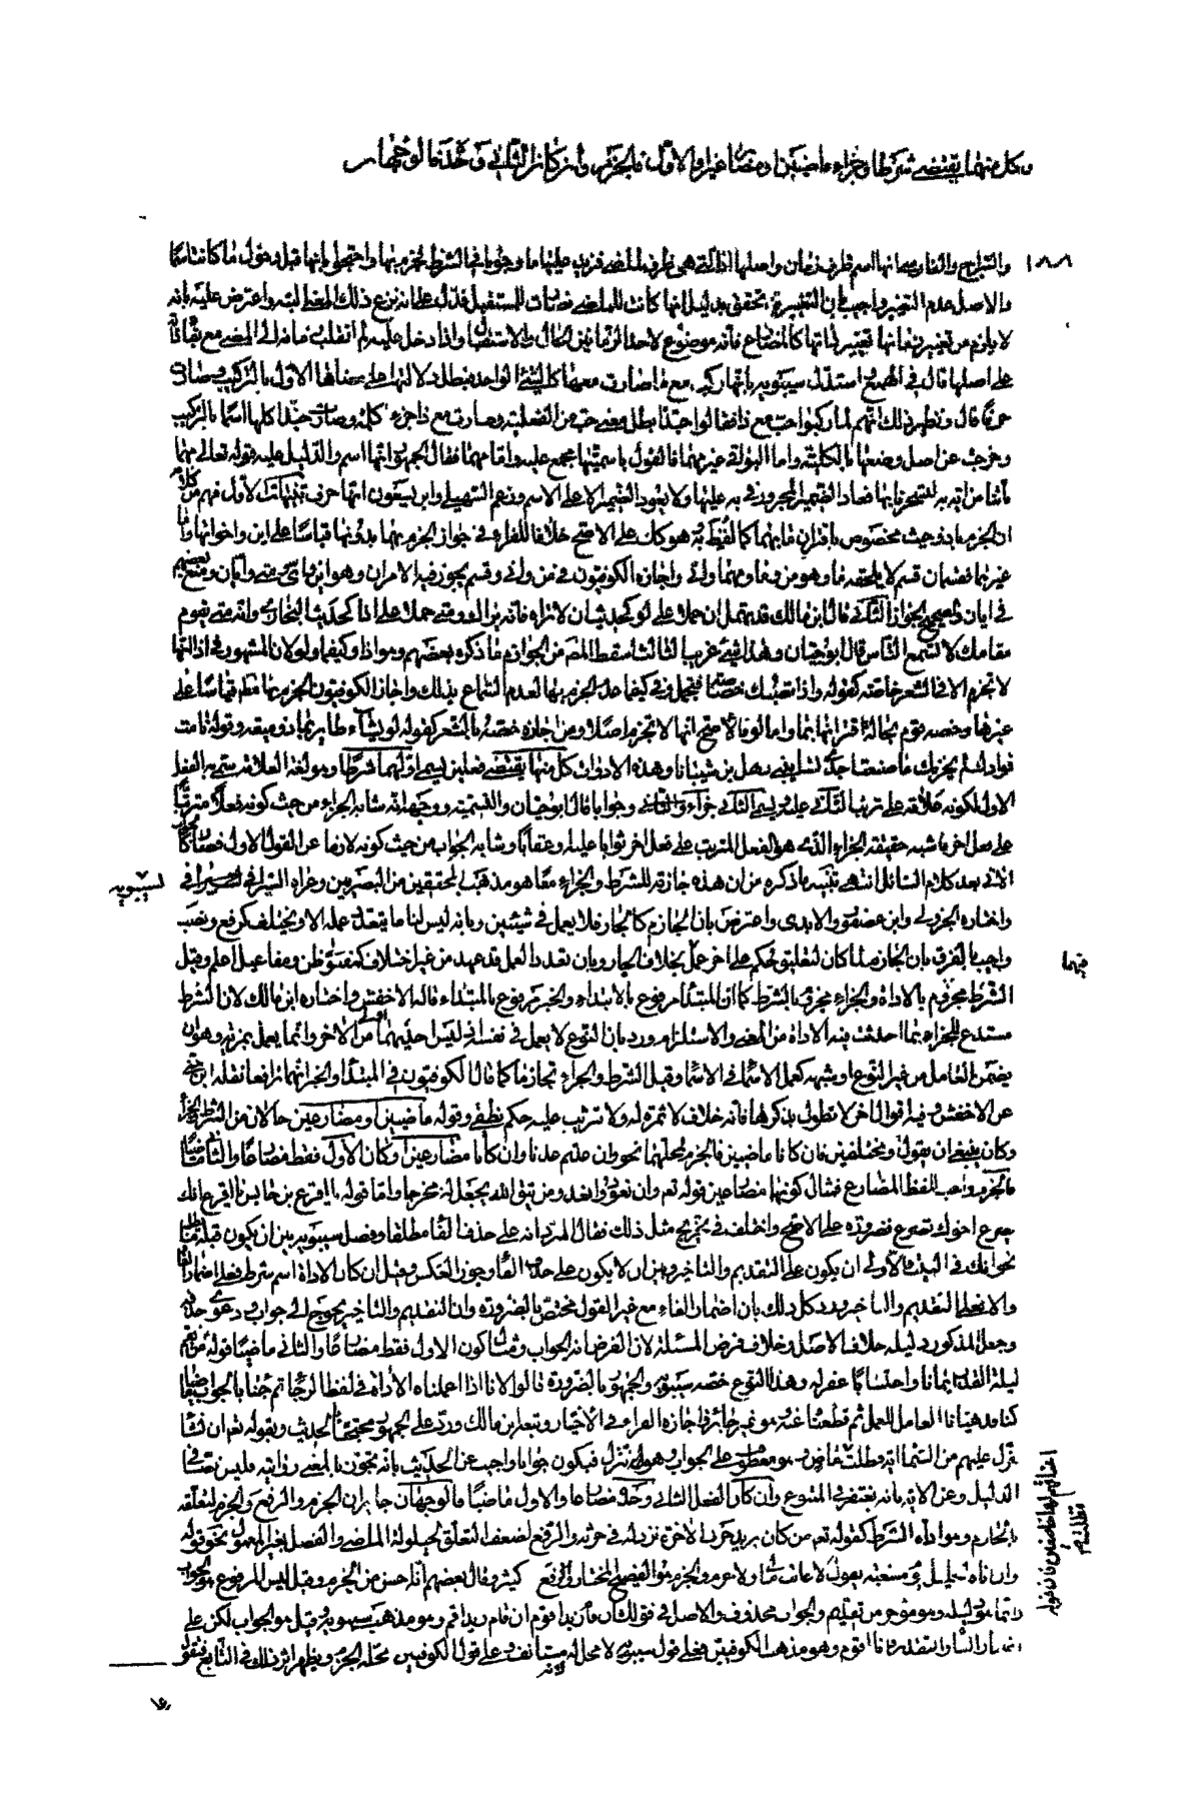 وكل منهما يقتضى شرطا وجزاء ماضيين او مضارعين او الاول فالجزم وان كان الثاني وحده فالوجهان
والسراج والفارسي انها اسم ظرف زمان واصلها اذ التي هي ظرف لما مضى فزيد عليها ما وجوبا في الشرط فجزم بها واحتجوا بانها قبل دخول ما كانت اسما
والاصل عدم التغيير واجيب بان التغيير قد تحقق بدليل انها كانت للماضي فصارت للمستقبل فدل على انه نزع ذلك المعنى البتة واعترض عليه بانه
لا يلزم من تغيير زمانها تغيير ذاتها كالمضارع فانه موضوع لاحد الزمانين الحال والاستقبال واذا دخل عليه لم انقلب زمانه الى المضي مع بقاء ذاته
على اصلها قال في الهمع استدل سيبويه بانها ركبت مع ما صارت معها كالشئ الواحد فبطل دلالتها على معناها الاول بالتركيب وصارت
حرفا قال ونظير ذلك انهم لما ركبوا حب مع ذا فقالوا حبذا بطل معنى حب من الفعلية وصارت مع ذا جزء كلمة وصارت حبذا كلها اسما بالتركيب
وخرجت عن اصل وضعها بالكلية واما البواقي غيرهما فالقول باسميتها مجمع عليه واما مهما فقال الجمهور انها اسم والدليل عليه قوله تعالى مهما
تأتنا به من اية لتسحرنا بها فعاد الضمير المجرور في به عليها ولا يعود الضمير الا على الاسم وزعم السهيلي وابن يسعون انها حرف تنبيهات الاول فهم من كلامه
ان الجزم باذ وحيث مخصوص باقتران ما بهما كما لفظ به هو كذلك على الاصح خلافا للفراء في جواز الجزم بهما بدونها قياسا على اين واخواتها واما
غيرهما فقسمان قسم لا يلحقه ما وهو من وما ومهما وانى واجازه الكوفيون في من وانى وقسم يجوز فيه الامران وهو اين واي ومتى وايان ومنع بعضهم
في ايان والصحيح الجواز الثاني قال ابن مالك قد تهمل ان حملا على لو كحديث فان لا تراه فانه يراك ومتى حملا على اذا كحديث البخاري وانه متى يقوم
مقامك لا يسمع الناس قال ابو حيان وهذا شئ غريب الثالث اسقط المص من الجوازم ما ذكره بعضهم وهو اذا وكيفما ولو لان المشهور في اذا انها
لا تجزم الا في الشعر خاصة كقوله واذا تصبك خصاصة فتجمل وفي كيفما عدم الجزم بها لعدم السماع بذلك واجاز الكوفيون الجزم بها مطلقا قياسا على
غيرها وخصه قوم بحالة اقترانها بما واما لو فالاصح انها لا تجزم اصلا ومن اجازه خصه بالشعر كقوله لو يشاء طار بها ذو ميعة وقوله تامت
فوادك لو يحزنك ما صنعت احدى نساء بني ذهل بن شيبانا وهذه الادوات كل منها يقتضى فعلين يسمى اولهما شرطا وهو لغة العلامة سمى به الفعل
الاول لكونه علامة على ترتب الثاني عليه ويسمى الثاني جزاء وجوابا قال ابو حيان والتسمية ووجهه انه شابه الجزاء من حيث كونه فعلا مترتبا
على فعل اخر فاشبه حقيقة الجزاء الذي هو الفعل المترتب على فعل اخر ثوابا عليه او عقابا وشابه الجواب من حيث كونه لازما عن القول الاول فصار كالجواب
الاتي بعد كلام السائل انتهى تنبيه ما ذكره من ان هذه جازمة للشرط والجزاء معا هو مذهب المحققين من البصريين وعزاه السيرافي
لسيبويه
واختاره الجزولي وابن عصفور والابدي واعترض بان الجازم كالجار فلا يعمل في شيئين وبانه ليس لنا ما يتعدد عمله الا ويختلف كرفع ونصب
واجيب بالفرق بان الجازم لما كان لتعليق حكم على اخر عمل بخلاف الجار وبان تعدد العمل قد عهد من غير اختلاف كمفعولي ظن ومفاعيل اعلم وقيل
فيهما
الشرط مجزوم بالاداة والجزاء مجزوم بالشرط كما ان المبتدا مرفوع بالابتداء والخبر مرفوع بالمبتداء قاله الاخفش واختاره ابن مالك لان الشرط
مستدع للجزاء بما احدثت فيه الاداة من المعنى والاستلزام ورد بان النوع لا يعمل في نفسه اذ ليس احدهما اولى من الاخر وانما يعمل بمزية وهو ان
يضمن العامل من غير النوع او شبهه كعمل الاسماء في الاسماء وقيل الشرط والجزاء تجازما كما قال الكوفيون في المبتدا والخبر انهما ترافعا نقله ابن جني
عن الاخفش وفيه اقوال اخر لا نطول بذكرها فانه خلاف لا ثمرة له ولا ترتيب عليه حكم نطقي وقوله ماضيين او مضارعين حالان من الشرط والجزاء
وكان ينبغي ان يقول ومختلفين فان كانا ماضيين فالجزم لمحلهما نحو وان عدتم عدنا وان كانا مضارعين او كان الاول فقط مضارعا والثاني ماضيا
فالجزم واجب للفظ المضارع فمثال كونهما مضارعين قوله تعالى وان تعودوا نعد ومن يتق الله يجعل له مخرجا واما قوله يا اقرع بن حابس يا اقرع انك
ان يصرع اخوك تصرع فضرورة على الاصح واختلف في تخريج مثل ذلك فقال المبرد انه على حذف الفاء مطلقا وفصل سيبويه بين ان يكون قبله ما يطلبه
نحو انك في البيت فالاولى ان يكون على التقديم والتاخير وبين ان لا يكون على حذف الفاء وجوز العكس وقيل ان كان الاداة اسم شرط فعلى اضمار الفاء
والا فعلى التقديم والتاخير ورد كل ذلك بان اضمار الفاء مع غير القول مختص بالضرورة وان التقديم والتاخير يحوج الى جواب ودعوى حذفه
وجعل المذكور دليله خلاف الاصل وخلاف فرض المسئلة لان الفرض انه الجواب ومثال كون الاول فقط مضارعا والثاني ماضيا قوله من يقم
ليلة القدر ايمانا واحتسابا غفر له وهذا النوع خصه سيبويه والجمهور بالضرورة قالوا لانا اذا اعملنا الاداة في لفظ الشرط ثم جئنا بالجواب ماضيا
كنا قد هيئنا العامل للعمل ثم قطعنا عنه وهو غير جائز واجازه الفراء في الاختيار وتبعه ابن مالك ورد على الجمهور محتجا بالحديث وبقوله تعالى ان نشأ
ننزل عليهم من السماء اية فظلت لان هو معطوف على الجواب وهو ننزل فيكون جوابا واجيب عن الحديث بانه يجوز بالمعنى روايته فليس نصا في
الدليل وعن الاية بانه يغتفر في المتبوع وان كان الفعل الثاني وحده مضارعا والاول ماضيا فالوجهان جائزان الجزم والرفع والجزم لتعلقه
بالجازم وهو اداة الشرط كقوله تعالى من كان يريد حرث الاخرة نزد له في حرثه والرفع لضعف التعلق لحيلولة الماضي والفصل بغير المعمول نحو قوله
وان اتاه خليل يوم مسغبة يقول لا غائب مالي ولا حرم والجزم هو الفصيح المختار والرفع كثير وقال بعضهم انه احسن من الجزم وقيل ليس المرفوع هو الجواب
وانما هو دليله وهو مؤخر من تقديم والجواب محذوف والاصل في قولك ان قام زيد اقوم اقوم ان قام زيد اقم وهو مذهب سيبويه وقيل هو الجواب لكن على
اضمار الفاء والتقدير فانا اقوم وهو مذهب الكوفيين فعلى قول سيبويه لا محل له لانه مستانف وعلى قول الكوفيين محله الجزم ويظهر اثر ذلك في التابع فتقول